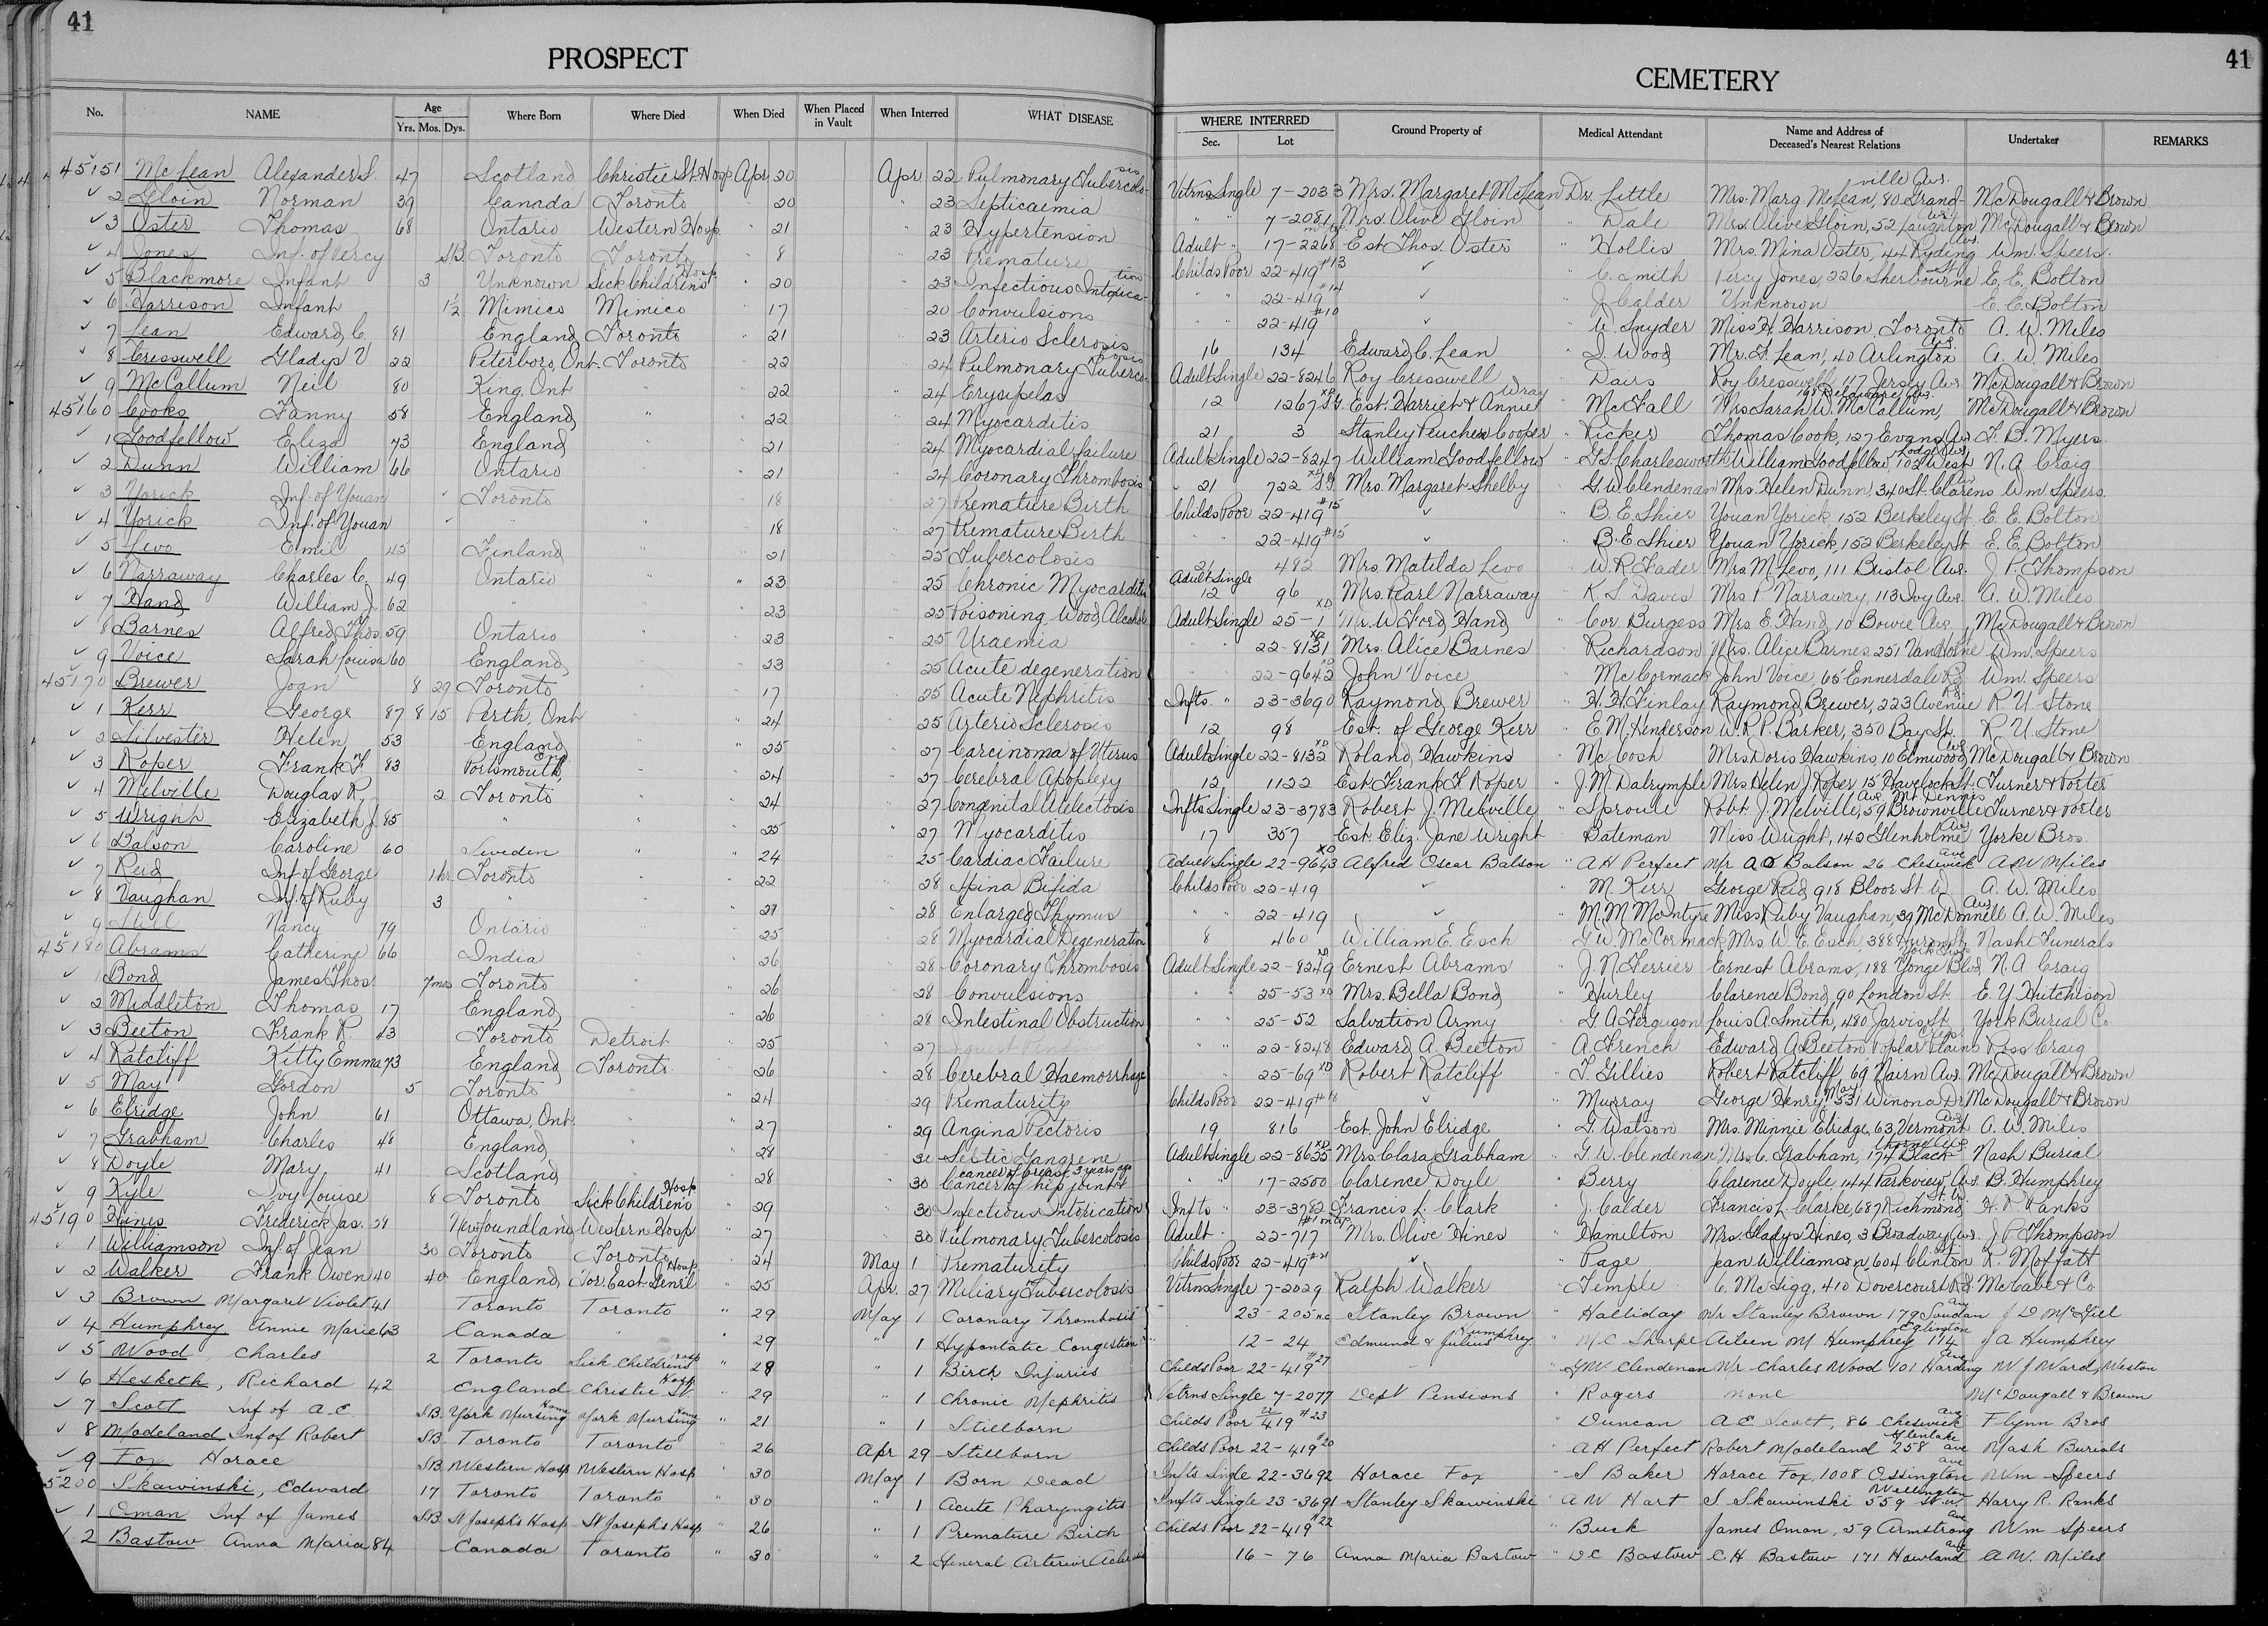 41
PROSPECT
No. NAME Age Yrs. Mos. Dys. Where Born Where Died When Died When Placed in Vault When Interred WHAT DISEASE
45151 McLean Alexander S. 47 Scotland Christie St. Hosp Apr 20 Apr 22 Pulmonary Tubercolosis
2 Gloin Norman 39 Canada Toronto " 20 " 23 Septicaemia
3 Oster Thomas 68 Ontario Western Hosp. " 21 " 23 Hypertension
4 Jones Inf. of Percy S.B. Toronto Toronto " 8 23 Premature
5 Blackmore Infant 3 Unknown Sick Childrens Hosp " 20 23 Infectious Intoxication
6 Harrison Infant 1½ Mimico Mimico " 17 20 Convulsions
7 Lean Edward C. 81 England Toronto " 21 23 Arterio Sclerosis
8 Cresswell Gladys V. 22 Peterboro, Ont. Toronto 22 24 Pulmonary Tuberculosis
9 McCallum Neil 80 King, Ont " 22 24 Erysipelas
45160 Cooks Fanny 58 England " 22 24 Myocarditis
1 Goodfellow Eliza 73 England " 21 24 Myocardial failure
2 Dunn William 66 Ontario " 21 24 Coronary Thrombosis
3 Yorick Inf. of Youan Toronto " 18 27 Premature Birth
4 Yorick Inf. of Youan " " 18 27 Premature Birth
5 Levo Emil 45 Finland " 21 25 Tubercolosis
6 Narraway Charles C. 49 Ontario " 23 25 Chronic Myocarditis
7 Hand William J. 62 " " 23 25 Poisoning Wood Alcohol
8 Barnes Alfred Thos. 59 Ontario " 23 25 Uraemia
9 Voice Sarah Louisa 60 England " 23 25 Acute degeneration
45170 Brewer Joan 8 29 Toronto " 17 25 Acute Nephritis
1 Kerr George 87 8 15 Perth, Ont " 24 25 Arterio Sclerosis
2 Silvester Helen 53 England " 25 27 Carcinoma of Uterus
3 Roper Frank F. 83 Portsmouth, Eng " 24 27 Cerebral Apoplexy
4 Melville Douglas R. 2 Toronto " 24 27 Congenital Atelectosis
5 Wright Elizabeth J. 85 " " 25 27 Myocarditis
6 Balson Caroline 60 Sweden " 24 25 Cardiac Failure
7 Reid Inf. of George 1 hr. Toronto " 22 28 Spina Bifida
8 Vaughan Inf. of Ruby 3 " " 27 28 Enlarged Thymus
9 Nancy 79 Ontario " 25 28 Myocardial Degeneration
45180 Abrams Catherine 66 India " 26 28 Coronary Thrombosis
1 Bond James Thos. 7mos Toronto " 26 28 Convulsions
2 Middleton Thomas 17 England " 26 28 Intestinal Obstruction
3 Beeton Frank R. 43 Toronto Detroit " 25 27
4 Ratcliff Kitty Emma 73 England Toronto " 26 28 Cerebral Haemorrhage
5 May Gordon 5 Toronto " 24 29 Prematurity
6 Elridge John 61 Ottawa, Ont. " 27 29 Angina Pectoris
7 Grabham Charles 48 England " 28 30 Septic Gangrene
8 Doyle Mary 41 Scotland " 28 30 Cancer of breast 3 years ago Cancer of hip joint
9 Kyle Ivy Louise 8 Toronto Sick Children's Hosp " 29 30 Infectious Intoxication
45190 Hines Frederick Jas. Newfoundland Western Hosp " 27 30 Pulmonary Tubercolosis
1 Williamson Inf. of Jean 30 Toronto Toronto " 24 May 1 Prematurity
2 Walker Frank Owen 40 40 England Tor. East. Genrl Hosp " 25 Apr. 27 Miliary Tubercolosis
3 Brown Margaret Violet 41 Toronto Toronto " 29 May 1 Coronary Thrombosis
4 Humphrey Annie Marie 63 Canada " " 29 " 1 Hypostatic Congestion
5 Wood Charles 2 Toronto Sick Childrens Hosp " 28 " 1 Birth Injuries
6 Hesketh, Richard 42 England Christie St. Hosp " 29 " 1 Chronic Nephritis
7 Scott Inf of A.E. S.B. York Nursing Home York Nursing Home " 21 " 1 Stillborn
8 Modeland Inf of Robert S.B. Toronto Toronto " 26 Apr 29 Stillborn
9 Fox Horace S.B. Western Hosp Western Hosp " 30 May 1 Born Dead
5200 Skawinski, Edward 17 Toronto Toronto " 30 " 1 Acute Pharyngitis
1 Oman Inf of James S.B. St Joseph's Hosp St Joseph's Hosp " 26 " 1 Premature Birth
2 Bastow Anna Maria 84 Canada Toronto " 30 " 2 General Arterior
41
CEMETERY
WHERE INTERRED Sec. Lot Ground Property of Medical Attendant Name and Address of Deceased's Nearest Relations Undertaker REMARKS
Vetrns Single 7-2033 Mrs. Margaret McLean Dr. Little Mrs. Marg McLean, 80 Grandville Ave. McDougall & Brown
" " 7-2081 Mrs. Olive Gloin " Dale Mrs. Olive Gloin, 52 Laughton Ave McDougall & Brown
Adult " 17-2268 Est. Thos. Oster " Hollis Mrs. Mina Oster, 44 Ryding Ave. Wm. Speers.
Childs Poor 22-419 #13 " C. Smith Percy Jones, 226 Sherbourne St E. E. Bolton
" " 22-419 #14 " J. Calder Unknown E. E. Bolton
22-419 #10 " W. Snyder Miss H. Harrison, Toronto A. W. Miles
16 134 Edward C. Lean " J. Wood Mr. F. Lean, 40 Arlington Ave. A. W. Miles
Adult Single 22-8246 Roy Cresswell " Davis Roy Cresswell, 117 Jersey Ave. McDougall & Brown
12 1267 Est. Harriet & Annie Wray " McFall Mrs Sarah W. McCallum, 168 Delaware Ave. McDougall & Brown
21 3 Stanley Peuchen Cooper " Ricker Thomas Cook, 127 Evans Ave F. B. Myers.
Adult Single 22-8247 William Goodfellow " G. S. Charlesworth William Goodfellow, 102 West Lodge Ave N. A. Craig
" 21 722 Mrs. Margaret Shelby " G. W. Clendenan Mrs. Helen Dunn, 340 St. Clarens Av Wm. Speers.
Childs Poor 22-419 #15 " B. E. Shier Youan Yorick, 152 Berkeley St E. E. Bolton
" " 22-419 #15 " B. E. Shier Youan Yorick, 152 Berkeley St E. E. Bolton
21 482 Mrs. Matilda Levo " W. R. Fader Mrs M. Levo, 111 Bristol Ave. J. P. Thompson
Adult Single 12 96 Mrs. Pearl Narraway " K. S. Davis Mrs P. Narraway, 113 Ivy Ave. A. W. Miles
Adult Single 25-1 XD Mr. W. Ford Hand " Cor. Burgess Mrs E. Hand, 10 Bowie Ave McDougall & Brown
" " 22-8131 XD Mrs. Alice Barnes " Richardson Mrs. Alice Barnes, 251 Van Horne Wm. Speers
" 22-9642 XD John Voice " McCormack John Voice, 65 Ennerdale Rd Wm. Speers
Infts. " 23-3690 Raymond Brewer " H. H. Finlay Raymond Brewer, 223 Avenue Rd R. U. Stone
12 98 Est. of George Kerr " E. M. Henderson W. R. P. Barker, 350 Bay St. R. U. Stone
Adult Single 22-8132 XD Roland Hawkins " McCosh Mrs. Doris Hawkins, 10 Elmwood Ave McDougall & Brown
12 1122 Est. Frank F. Roper " J. M. Dalrymple Mrs Helen J. Roper, 15 Havelock St. Turner & Porter
Infts Single 23-3783 Robert J. Melville " Sproule Robt. J. Melville, 59 Brownville Ave. Mt. Dennis Turner & Porter
17 357 Est. Eliz. Jane Wright " Bateman Miss Wright, 142 Glenholme Ave Yorke Bros.
Adult Single 22-9643 XD Alfred Oscar Balson " A H Perfect Mr A O Balson 26 Cheswick ave A W Miles
Childs Poor 22-419 " M. Kerr George Reid 918 Bloor St W A. W. Miles
" " 22-419 " M. M. McIntyre Miss Ruby Vaughan, 39 McDonnell Ave A. W. Miles
8 460 William E. Esch " G. W. McCormack Mrs. W. E. Esch, 388 Huron St. Nasht Funerals
Adult Single 22-8249 XD Ernest Abrams " J. N. Ferrier Ernest Abrams, 188 Yonge Blvd York Twp. N. A. Craig
" " 25-53 XD Mrs. Bella Bond " Hurley Clarence Bond, 90 London St. E. Y. Hutchison
" " 25-52 Salvation Army " G. A. Ferguson Louis A Smith, 480 Jarvis St York Burial Co.
" " 22-8248 Edward A Beeton " A. French Edward A. Beeton Poplar Plains Ross Craig
" 25-69 XD Robert Ratcliff " T. Gillies Robert Ratcliff, 69 Nairn Ave. McDougall & Brown
Childs Poor 22-419 #18 " Murray George Henry May 531 Winona Dr McDougall & Brown
19 816 Est. John Elridge " G. Watson Mrs. Minnie Elridge, 63 Vermont Ave A. W. Miles
Adult Single 22-8635 XD Mrs. Clara Grabham " G. W. Clendenan Mrs. C. Grabham, 174 Black Thorne Ave Nash Burial
" 17-2500 Clarence Doyle " Berry Clarence Doyle, 144 Parkview Ave. B. Humphrey
Infts " 23-3782 Francis L. Clark " J. Calder Francis L. Clarke, 687 Richmond St. W. H. R. Ranks
Adult " 22-717 Mrs. Olive Hines " Hamilton Mrs. Gladys Hines, 3 Broadway Ave. J. P. Thompson
Childs Poor 22-419 #21 " Page Jean Williamson, 604 Clinton St R. Moffatt
Vetrns Single 7-2029 Ralph Walker " Temple C. McTigg, 410 Dovercourt Rd McCabe & Co
23-205 Stanley Brown " Halliday Mr Stanley Brown 179 Soudan Ave J D McGill
12-24 Edmund & Julius Humphrey " M. C. Sharpe Aileen M Humphrey 114 Eglinton J A Humphrey
Childs Poor 22-419 #27 " G W. Clendenan Mr. Charles Wood 101 Harding Ave W J Ward, Weston
Vetrns Single 7-2077 Dept Pensions " Rogers none McDougall & Brown
Childs Poor 22 419 #23 " Duncan A. E. Scott, 86 Cheswick Ave Flynn Bros
Childs Poor 22-419 #20 " A H Perfect Robert Modeland 258 Glenlake ave Nash Burials
Infts Single 22-3692 Horace Fox " S Baker Horace Fox, 1008 Ossington ave Wm Speers
Infts Single 23-3691 Stanley Skawinski " A W Hart S. Skawinski 559 Wellington St W Harry R. Ranks
Childs Poor 22-419 #22 " Buck James Oman, 59 Armstrong Ave Wm Speers
16-76 Anna Maria Bastow " D C Bastow C. H Bastow 171 Howland ave A W. Miles